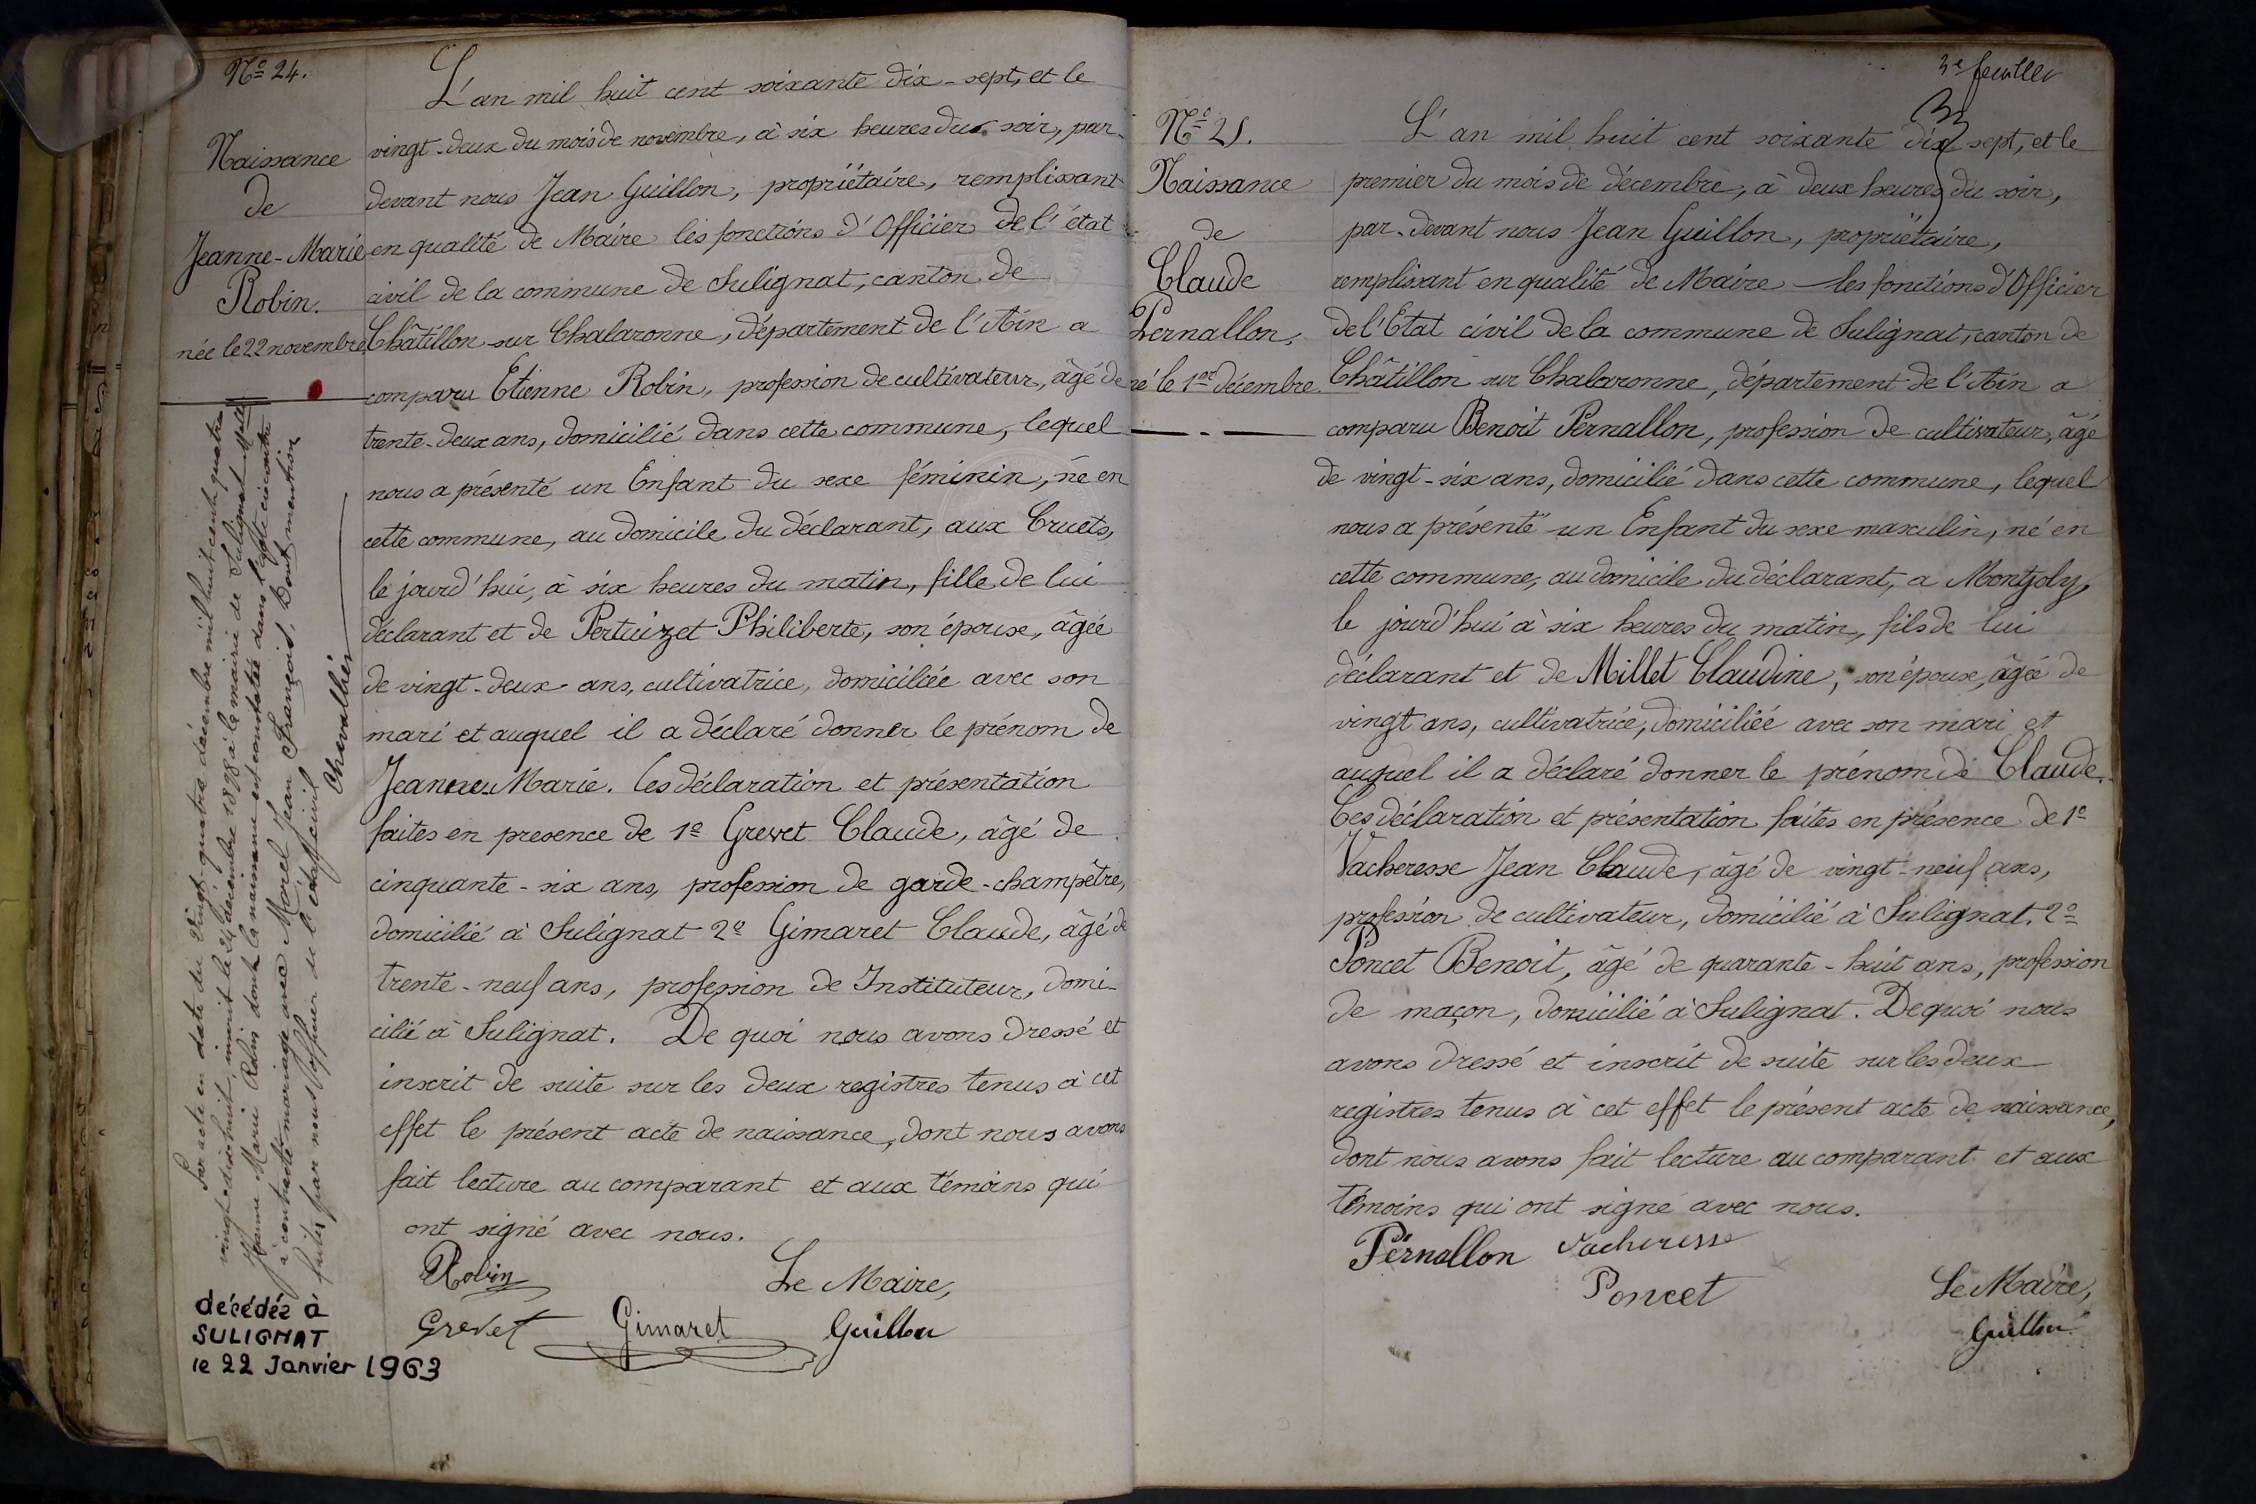 Nº 24.
Naissance
de
Jeanne-Marie
Robin.
née le 22 novembre
L'an mil huit cent soixante dix-sept, et le
vingt-deux du mois de novembre, à six heures du soir, par-
devant nous Jean Guillon, propriétaire, remplissant
en qualité de Maire les fonctions d'Officier de l'état
civil de la commune de Sulignat, canton de
Châtillon sur Chalaronne, département de l'Ain a
comparu Etienne Robin, profession de cultivateur, âgé de
trente-deux ans, domicilié dans cette commune, lequel
nous a présenté un Enfant du sexe féminin, né en
cette commune, au domicile du déclarant, aux Cruets,
le jourd'hui, à six heures du matin, fille de lui
déclarant et de Pertuizet Philiberte, son épouse, âgée
de vingt-deux ans, cultivatrice, domiciliée avec son
mari et auquel il a déclaré donner le prénom de
Jeanne-Marie. Ces déclaration et présentation
faites en presence de 1º Grevet Claude, âgé de
cinquante-six ans, profession de garde-champêtre,
domicilié à Sulignat 2º Gimaret Claude, âgé de
trente-neuf ans, profession de Instituteur, domi-
cilié à Sulignat. De quoi nous avons dressé et
inscrit de suite sur les deux registres tenus à cet
effet le présent acte de naissance, dont nous avons
fait lecture au comparant et aux témoins qui
ont signé avec nous.
Robin
Le Maire,
Grevet Gimaret Guillon
Par acte en date du vingt-quatre décembre mil huit cent quatre
vingt-dix-huit, inscrit le 24 décembre 1898 à la mairie de Sulignat Melle
Jeanne Marie Robin dont la naissance est constatée dans l'acte ci-contre
a contracté mariage avec Morel Jean François, Dont mention
faite par nous officier de l'état civil
Chevallier
décédée à
SULIGNAT
le 22 Janvier 1963
3e feuillet
Nº 25.
Naissance
de
Claude
Pernallon,
né le 1er décembre
L'an mil huit cent soixante dix sept, et le
premier du mois de décembre, à deux heures du soir,
par-devant nous Jean Guillon, propriétaire,
remplissant en qualité de Maire les fonctions d'Officier
de l'Etat civil de la commune de Sulignat, canton de
Châtillon sur Chalaronne, département de l'Ain a
comparu Benoit Pernallon, profession de cultivateur, âgé
de vingt-six ans, domicilié dans cette commune, lequel
nous a présenté un Enfant du sexe masculin, né en
cette commune, au domicile du déclarant, a Montjoly,
le jourd'hui à six heures du matin, fils de lui
déclarant et de Millet Claudine, son épouse, âgée de
vingt ans, cultivatrice, domiciliée avec son mari et
auquel il a déclaré donner le prénom de Claude.
Ces déclaration et présentation faites en présence de 1º
Vacheresse Jean Claude, âgé de vingt-neuf ans,
profession de cultivateur, domicilié à Sulignat. 2º
Poncet Benoit, âgé de quarante-huit ans, profession
de maçon, domicilié à Sulignat. De quoi nous
avons dressé et inscrit de suite sur les deux
registres tenus à cet effet le présent acte de naissance,
dont nous avons fait lecture au comparant et aux
témoins qui ont signé avec nous.
Pernallon Vacheresse
Poncet Le Maire,
Guillon